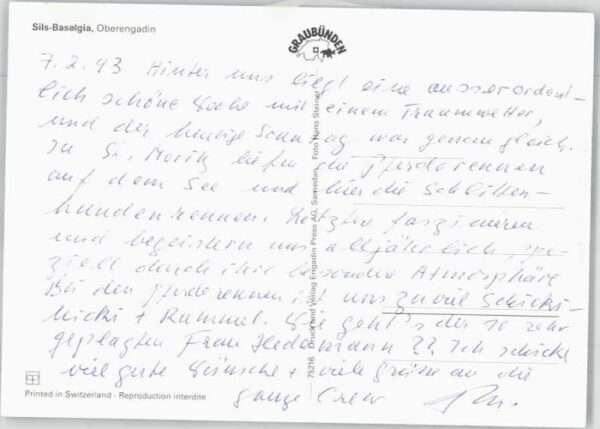 Sils-Baselgia, Oberengadin
GRAUBÜNDEN
7.2.93 Hinter uns liegt eine ausserordent-
lich schöne Woche mit einem Traumwetter,
und der heutige Sonntag war genau gleich.
In St. Moritz liefen die Pferderennen
auf dem See und hier die Schlitten-
hunderennen. Letztere faszinieren
und begeistern uns alljährlich, spe-
ziell durch ihre besondere Atmosphäre
Bei den Pferderennen ist uns zu viel Schicki-
micki + Rummel. Wie geht's der so sehr
geplagten Frau Hedemann?? Ich schicke
viel gute Wünsche + viele Grüsse an die
ganze Crew
75216 Druck und Verlag Engadin Press AG, Samedan Foto Hans Steiner
Printed in Switzerland - Reproduction interdite